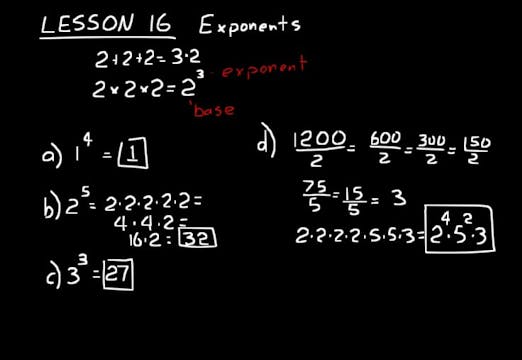 LESSON 16 Exponents
2+2+2=3·2
2×2×2=2³ - exponent
base
a) 1⁴ = 1
b) 2⁵ = 2·2·2·2·2=
4·4·2=
16·2= 32
c) 3³ = 27
d) 1200/2 = 600/2 = 300/2 = 150/2
75/5 = 15/5 = 3
2·2·2·2·5·5·3= 2⁴·5²·3